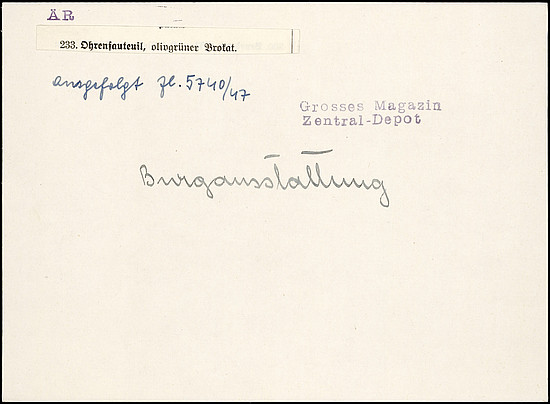 ÄR
233. Ohrenfauteuil, olivgrüner Brokat.
ausgefolgt Zl. 5740/47
Grosses Magazin
Zentral-Depot
Burgausstattung